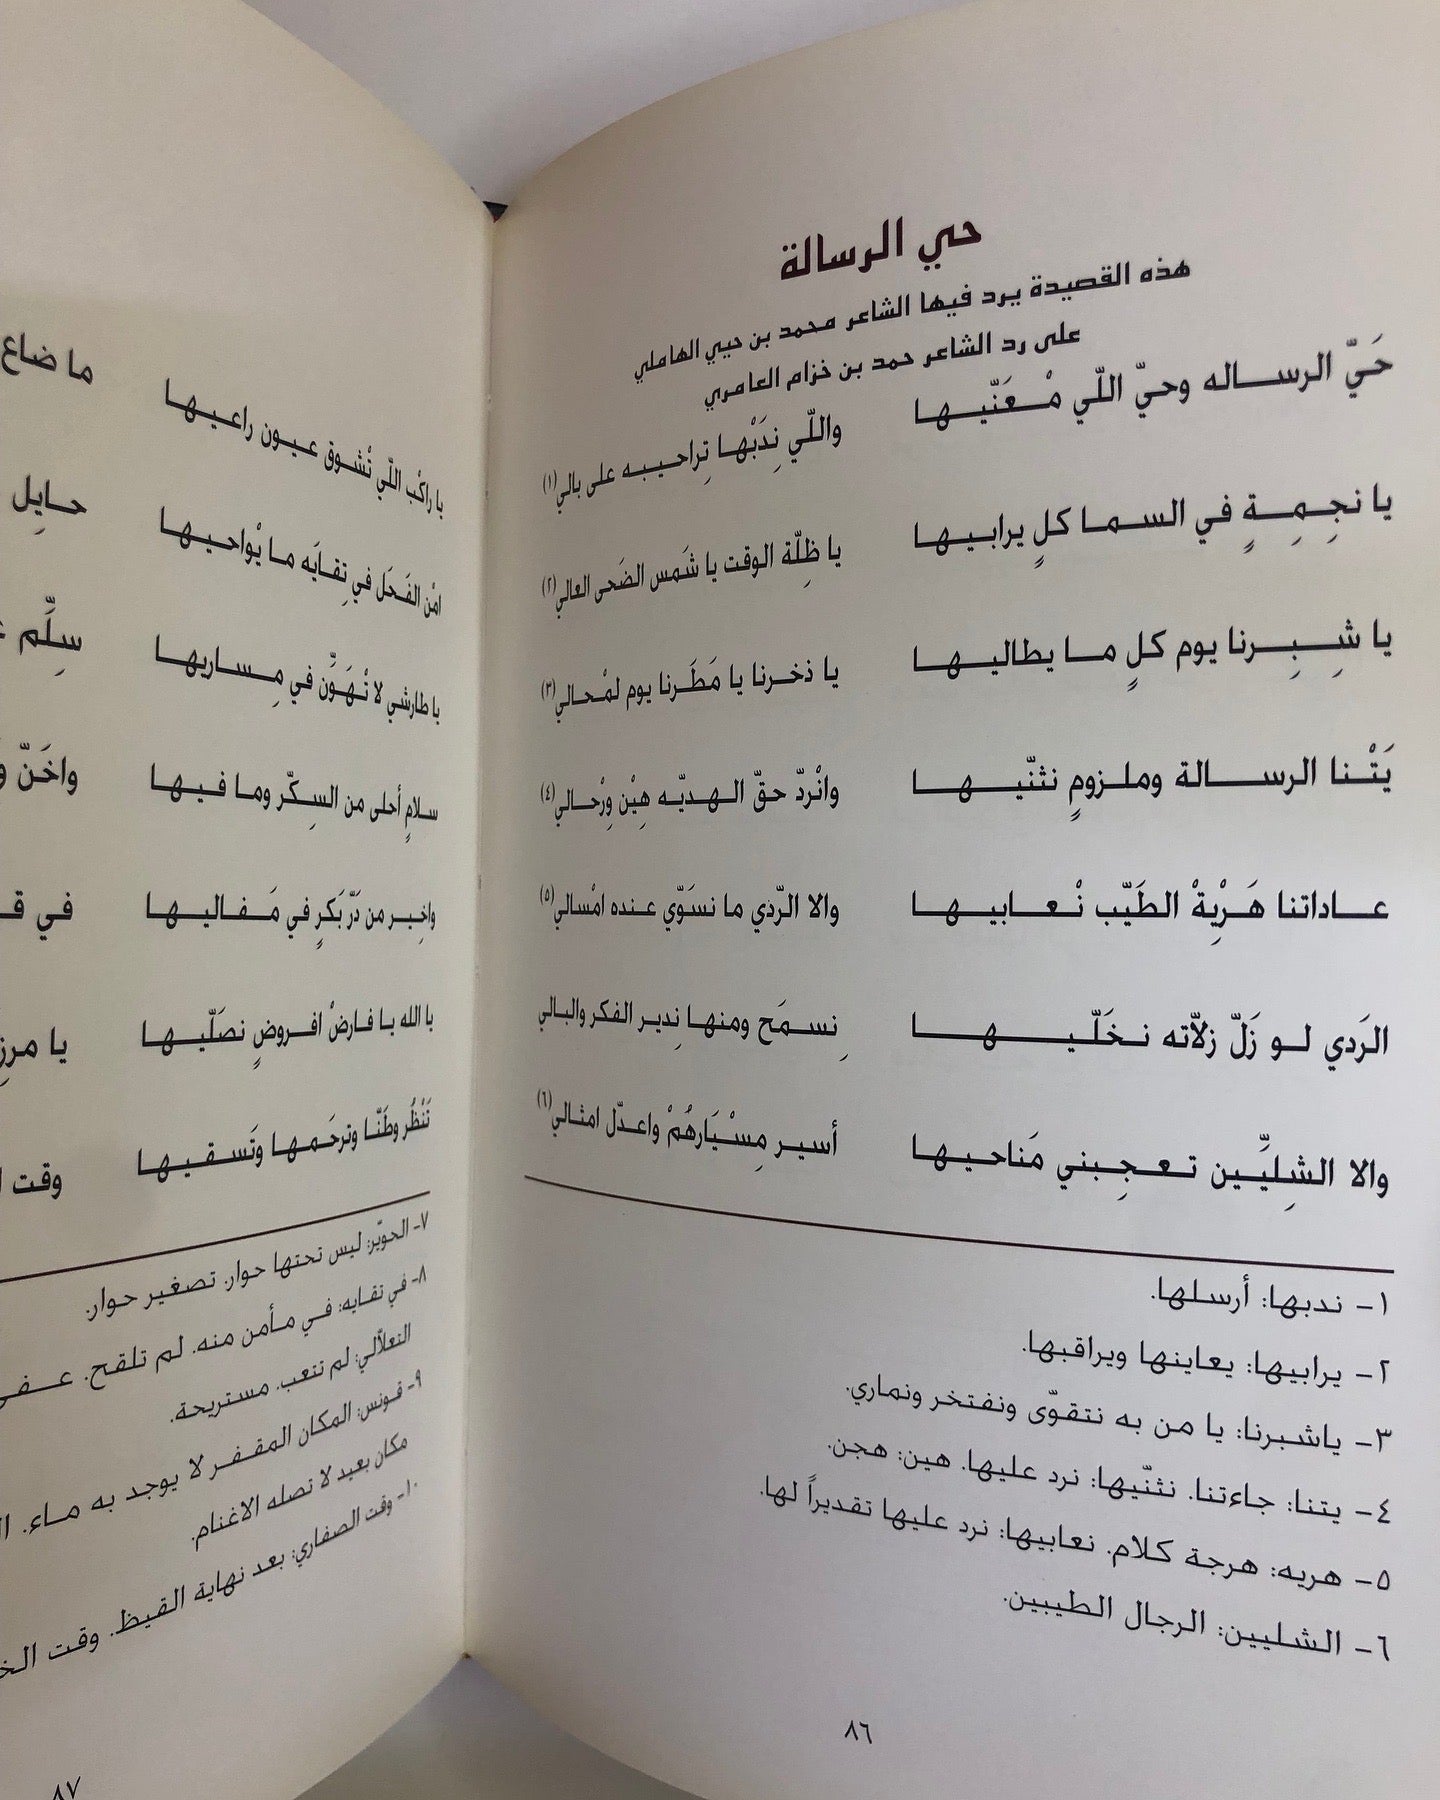 حي الرسالة
هذه القصيدة يرد فيها الشاعر محمد بن حيي الهاملي
على رد الشاعر حمد بن خزام العامري
حَيّ الرساله وحيّ اللّي مْعَنّيها واللّي نِدَبْها تِراحيبه على بالي(١)
يا نجِمِةٍ في السما كلٍ يرابيها يا ظِلّة الوقت يا شَمس الضَحى العالي(٢)
يا شِبِرنا يوم كلٍ ما يطاليها يا ذخرنا يا مَطَرنا يوم لمْحالي(٣)
يَتْنا الرسالة وملزومٍ نثنّيها وانْردّ حقّ الهديّه هِيْن وِرْحالي(٤)
عاداتنا هَرْيِةْ الطَيّب نْعابيها والا الرّدي ما نسَوّي عنده امْسالي(٥)
الرَدي لو زَلّ زلاّته نخَلّيها نِسمَح ومنها نِدير الفكر والبالي
والا الشِليِّين تعجِبني مَناحيها أسير مِسْيَارهُمْ واعدّل امثالي(٦)
١- ندبها: أرسلها.
٢- يرابيها: يعاينها ويراقبها.
٣- ياشبرنا: يا من به نتقوّى ونفتخر ونماري.
٤- يتنا: جاءتنا. نثنّيها: نرد عليها. هين: هجن.
٥- هريه: هرجة كلام. نعابيها: نرد عليها تقديراً لها.
٦- الشليين: الرجال الطيبين.
٨٦
يا راكْب اللّي تْشوق عيون راعيها ما ضاع
امْن الفَحَل في تِقابَه ما يْواحيها حايِل
يا طارشي لا تْهَوَّن في مِساريها سِلِّم
سلامٍ أحلى من السِكّر وما فيها واخَنّ
واخِير من دَرّ بَكرٍ في مَفاليها في
يا الله يا فارضْ افروضٍ نصَلّيها يا
تَنْظُر وطَنّا وترحَمها وتَسقيها وقت
٧- الحوّير: ليس تحتها حوار. تصغير حوار.
٨- في تقابه: في مأمن منه. لم تلقح.
التعلاّلي: لم تتعب. مستريحة.
٩- قونس: المكان المقفر لا يوجد به ماء.
مكان بعيد لا تصله الاغنام.
١٠- وقت الصفاري: بعد نهاية القيظ. وقت
٨٧